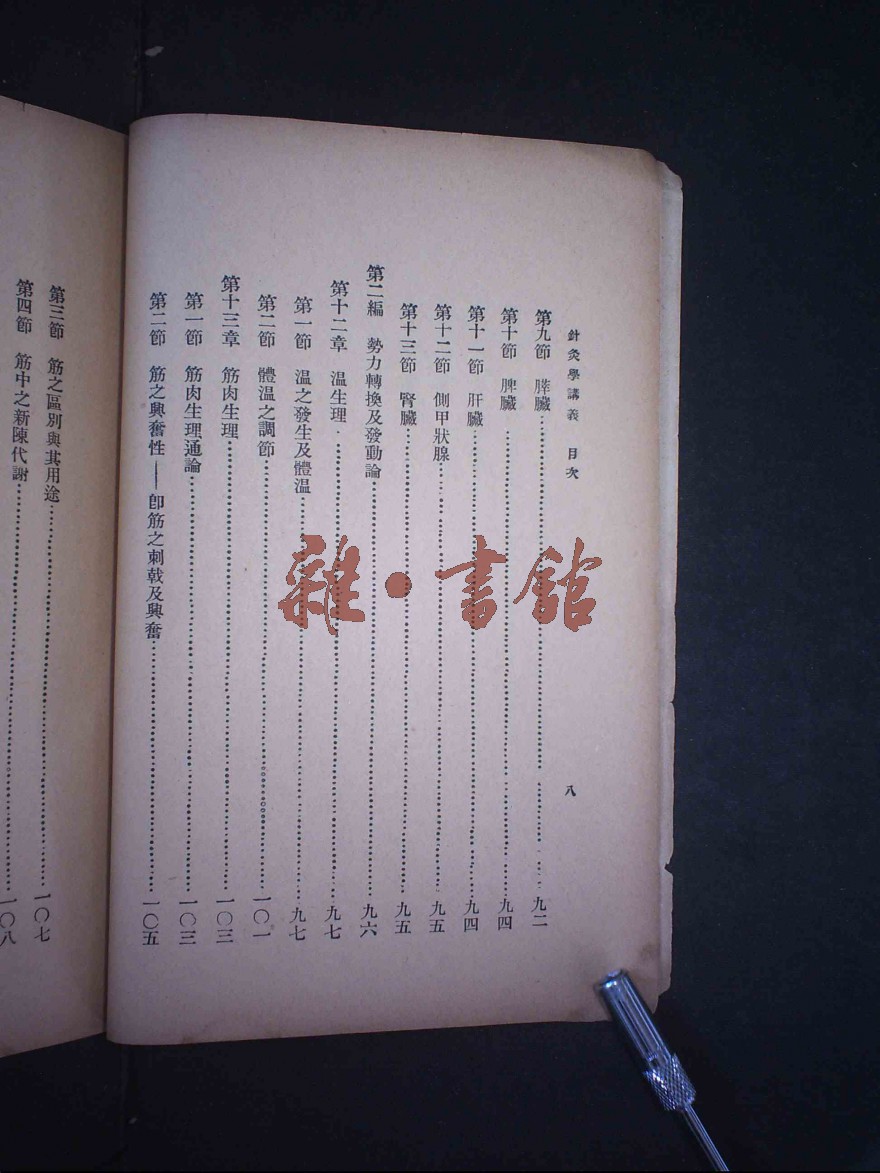 針灸學講義 目次 八
第九節 膵臟……九二
第十節 脾臟……九四
第十一節 肝臟……九四
第十二節 側甲狀腺……九五
第十三節 腎臟……九五
第二編 勢力轉換及發動論……九六
第十二章 温生理……九七
第一節 温之發生及體温……九七
第二節 體温之調節……一〇一
第十三章 筋肉生理……一〇三
第一節 筋肉生理通論……一〇三
第二節 筋之興奮性——卽筋之刺戟及興奮……一〇五
第三節 筋之區別與其用途……一〇七
第四節 筋中之新陳代謝……一〇八
雜·書館